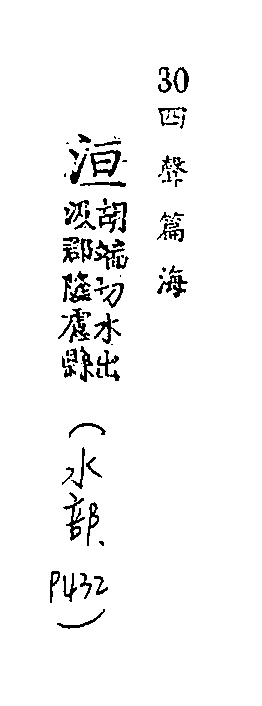 30四聲篇海
洹
胡端切水出
汲郡隆慮縣
(水部、P432)